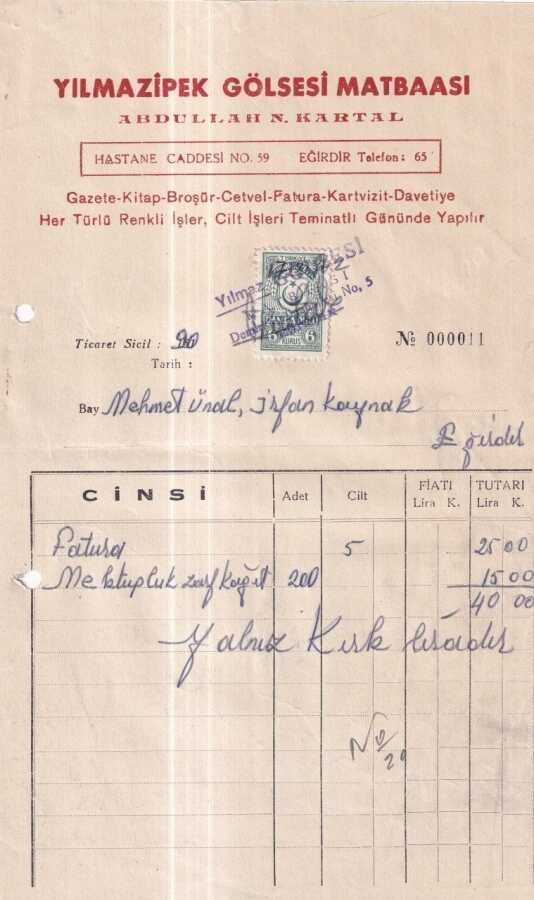 YILMAZİPEK GÖLSESİ MATBAASI
ABDULLAH N. KARTAL
HASTANE CADDESİ NO. 59 EĞİRDİR Telefon: 65
Gazete-Kitap-Broşür-Cetvel-Fatura-Kartvizit-Davetiye
Her Türlü Renkli İşler, Cilt İşleri Teminatlı Gününde Yapılır
Yılmaz
No. 5
5 KURUŞ 5
Ticaret Sicil :
№ 000011
Tarih :
Bay Mehmet ünal, irfan kaynak
Eğirdir
CİNSİ Adet Cilt FİATI TUTARI
Lira K. Lira K.
Fatura 5 25 00
Mektupluk zarf kağıt 200 15 00
40 00
Yalnız Kırk liradır